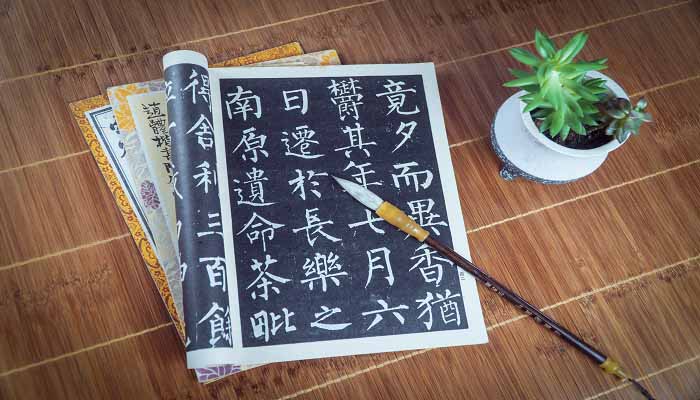 竟夕而異香猶
欝其年七月六
日遷於長樂之
南原遺命茶毗
得舍利三百餘